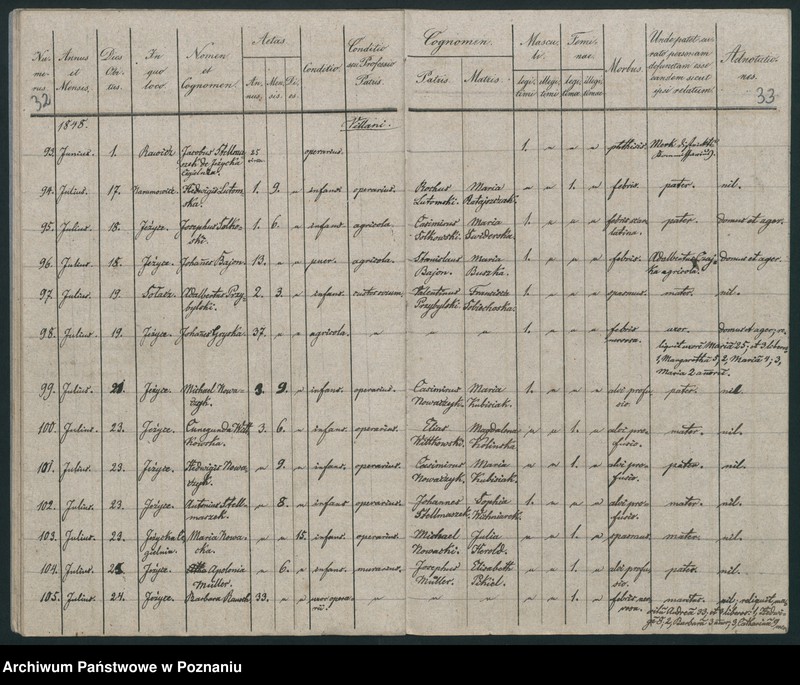 Numerus. Annus et Mensis. Dies Obitus. In quo loco. Nomen et Cognomen. Aetas. Annus. Mensis. Dies Conditio. Conditio seu Professio Patris. Cognomen. Patris. Matris. Masculi. legitimi illegitimi Feminae. legitimae illegitimae Morbus. Unde patet narrato personam defunctam esse eandem sicut ipsi relatum. Adnotationes.
32 33
1848. Villani.
93. Junius. 1. Rawicz. Jacobus 25 operarius. 1. phthisis.
94. Julius. 17. Hedwigis Lutomska. 1. 9. infans operarius. Rochus Lutomski. Maria Ratajszczak. 1. febris. pater. nil.
95. Julius. 18. Jeżyce. Josephus Solkoski. 1. 6. infans agricola. Casimirus Solkowski. Maria Swiderska. 1. febris scarlatina. pater. domus et ager.
96. Julius. 18. Jeżyce. Johañes Bajon. 13. puer. agricola. Stanislaus Bajon. Maria Buszka. 1. febris. agricola. domus et ager.
97. Julius. 19. Solacz. Adalbertus Przybylski. 2. 3. infans. Valentinus Przybylski Francisca 1. spasmus. mater. nil.
98. Julius. 19. Jeżyce. Johañes 37. agricola. 1. febris nervosa. uxor. domus et ager; reliquit uxorē Mariā 25, et 3 liberos, 1, Margarethā 5; 2, Mariā 4; 3, Maria 2 annorū.
99. Julius. Jeżyce. Michael Nowaczyk. 3. 9. infans. operarius. Casimirus Nowaczyk. Maria Kubisiak. 1. alvi profusio. pater. nil.
100. Julius. 23. Jeżyce. Cunegunda Wittkowska. 3. 6. infans. operarius. Wittkowski. Magdalena Kolinska 1. alvi profusio. mater. nil.
101. Julius. 23. Jeżyce. Hedwigis Nowaczyk. 9. infans. operarius. Casimirus Nowaczyk. Maria Kubisiak. 1. alvi profusio. pater. nil.
102. Julius. 23. Jeżyce. Antonius Stellmaszek. 8. infans operarius. Johannes Stellmaszek Sophia 1. alvi profusio. mater. nil.
103. Julius. 23. Maria Nowacka. 15. infans. operarius. Michael Nowacki. Julia Herold. 1. spasmus. mater. nil.
104. Julius. Jeżyce. Apolonia Müller. 6. infans. murarius. Josephus Müller. Elisabeth 1. alvi profusio. pater. nil.
105. Julius. 24. Jeżyce. Barbara 33. uxor operarii. 1. febris nervosa. maritus. nil; reliquit maritū Andreā 33, et liberos: 1, Hedwigē 5; 2, Barbarā 3 3, Catharinā
Archiwum Państwowe w Poznaniu